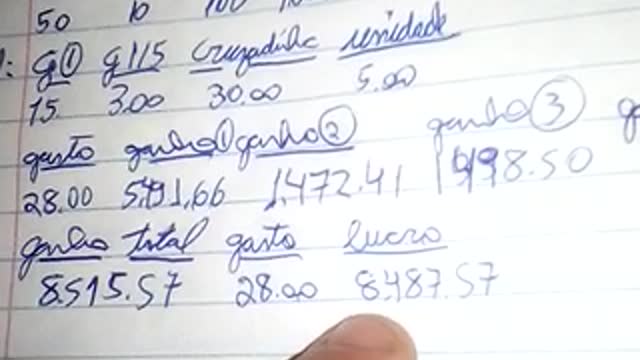 50 10 100
g① g115 cruzadinha unidade
15. 3.00 30.00 5.00
gasto ganho① ganho② ganho③
28.00 5.491,66 1.472.41 1.498.50
ganho total gasto lucro
8.515.57 28.00 8.487.57